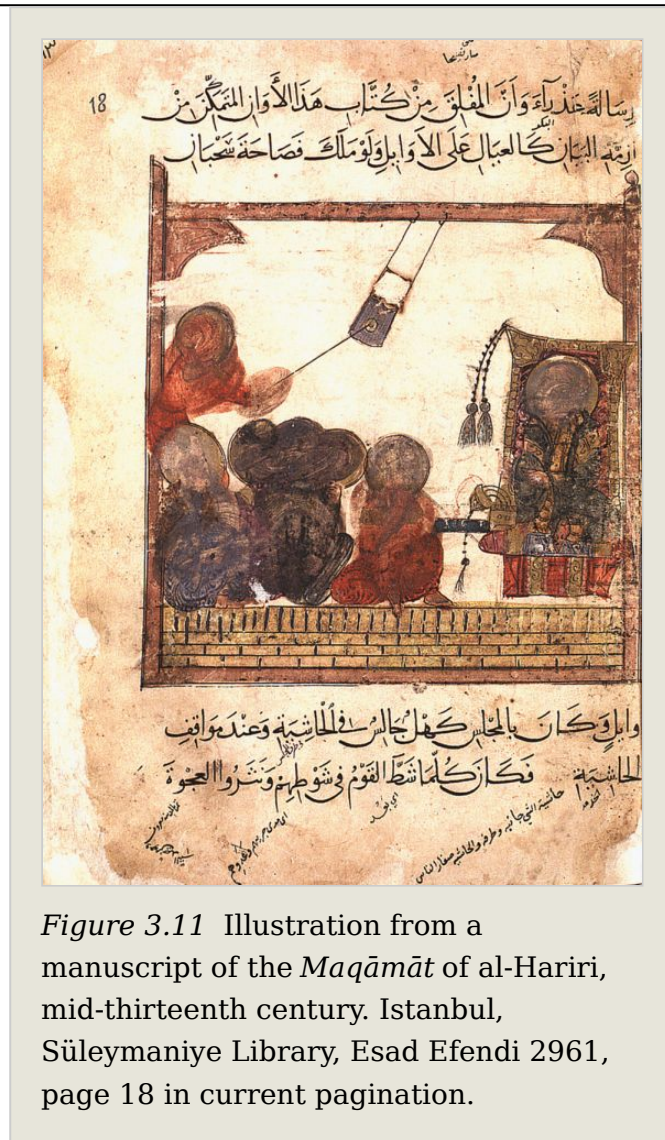 18
رِسَالَةً عَذْرَآءَ وَأَنَّ المُفْلِقَ مِنْ كُتَّابِ هَذَا الأَوَانِ المُتَمَكِّنَ مِنْ
ازِمَّةِ البَيَانِ كَالعِيَالِ عَلَى الأَوَايِلِ وَلَوْ مَلَكَ فَصَاحَةَ سَحْبَانِ
وَايِلٍ وَكَانَ بِالمَجْلِسِ كَهْلٌ جَالِسٌ فِي الْحَاشِيَةِ وَعِنْدَ مَوَاقِفِ
الحَاشِيَةِ فَكَانَ كُلَّمَا شَطَّ القَوْمُ فِي شَوْطِهِمْ وَنَثَرُوا العَجْوَةَ
اي بعد
حاشية الشي جانبه وطرفه والحاشيه صغار الناس
Figure 3.11 Illustration from a
manuscript of the Maqāmāt of al-Hariri,
mid-thirteenth century. Istanbul,
Süleymaniye Library, Esad Efendi 2961,
page 18 in current pagination.